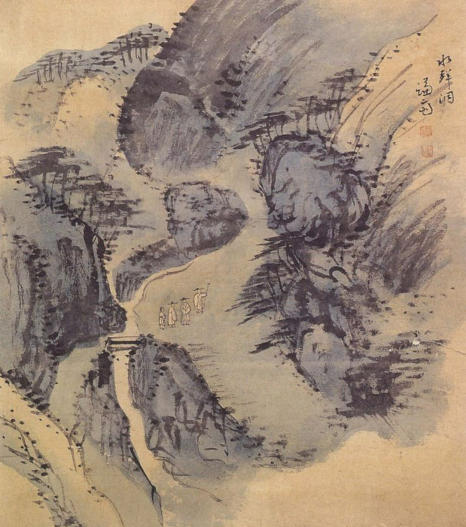 水聲洞
謙齋